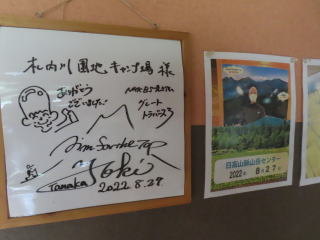 札内川園地キャンプ場 様
ありがとう
ございました!
NHK BSプレミアム
グレート
トラバース3
Aim for the Top
Tanaka Yoki
2022 8.27
日高山脈山岳センター
2022年 8月27日